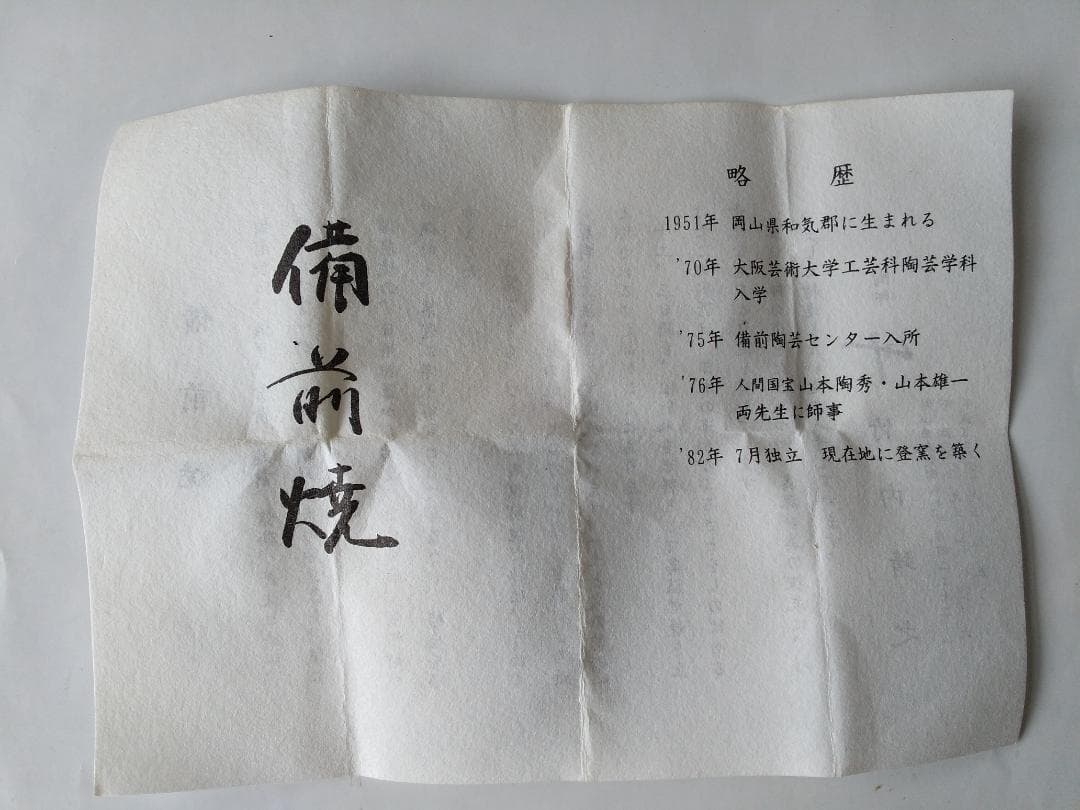 備前焼
略 歴
1951年 岡山県和気郡に生まれる
'70年 大阪芸術大学工芸科陶芸学科
入学
'75年 備前陶芸センター入所
'76年 人間国宝山本陶秀・山本雄一
両先生に師事
'82年 7月独立 現在地に登窯を築く